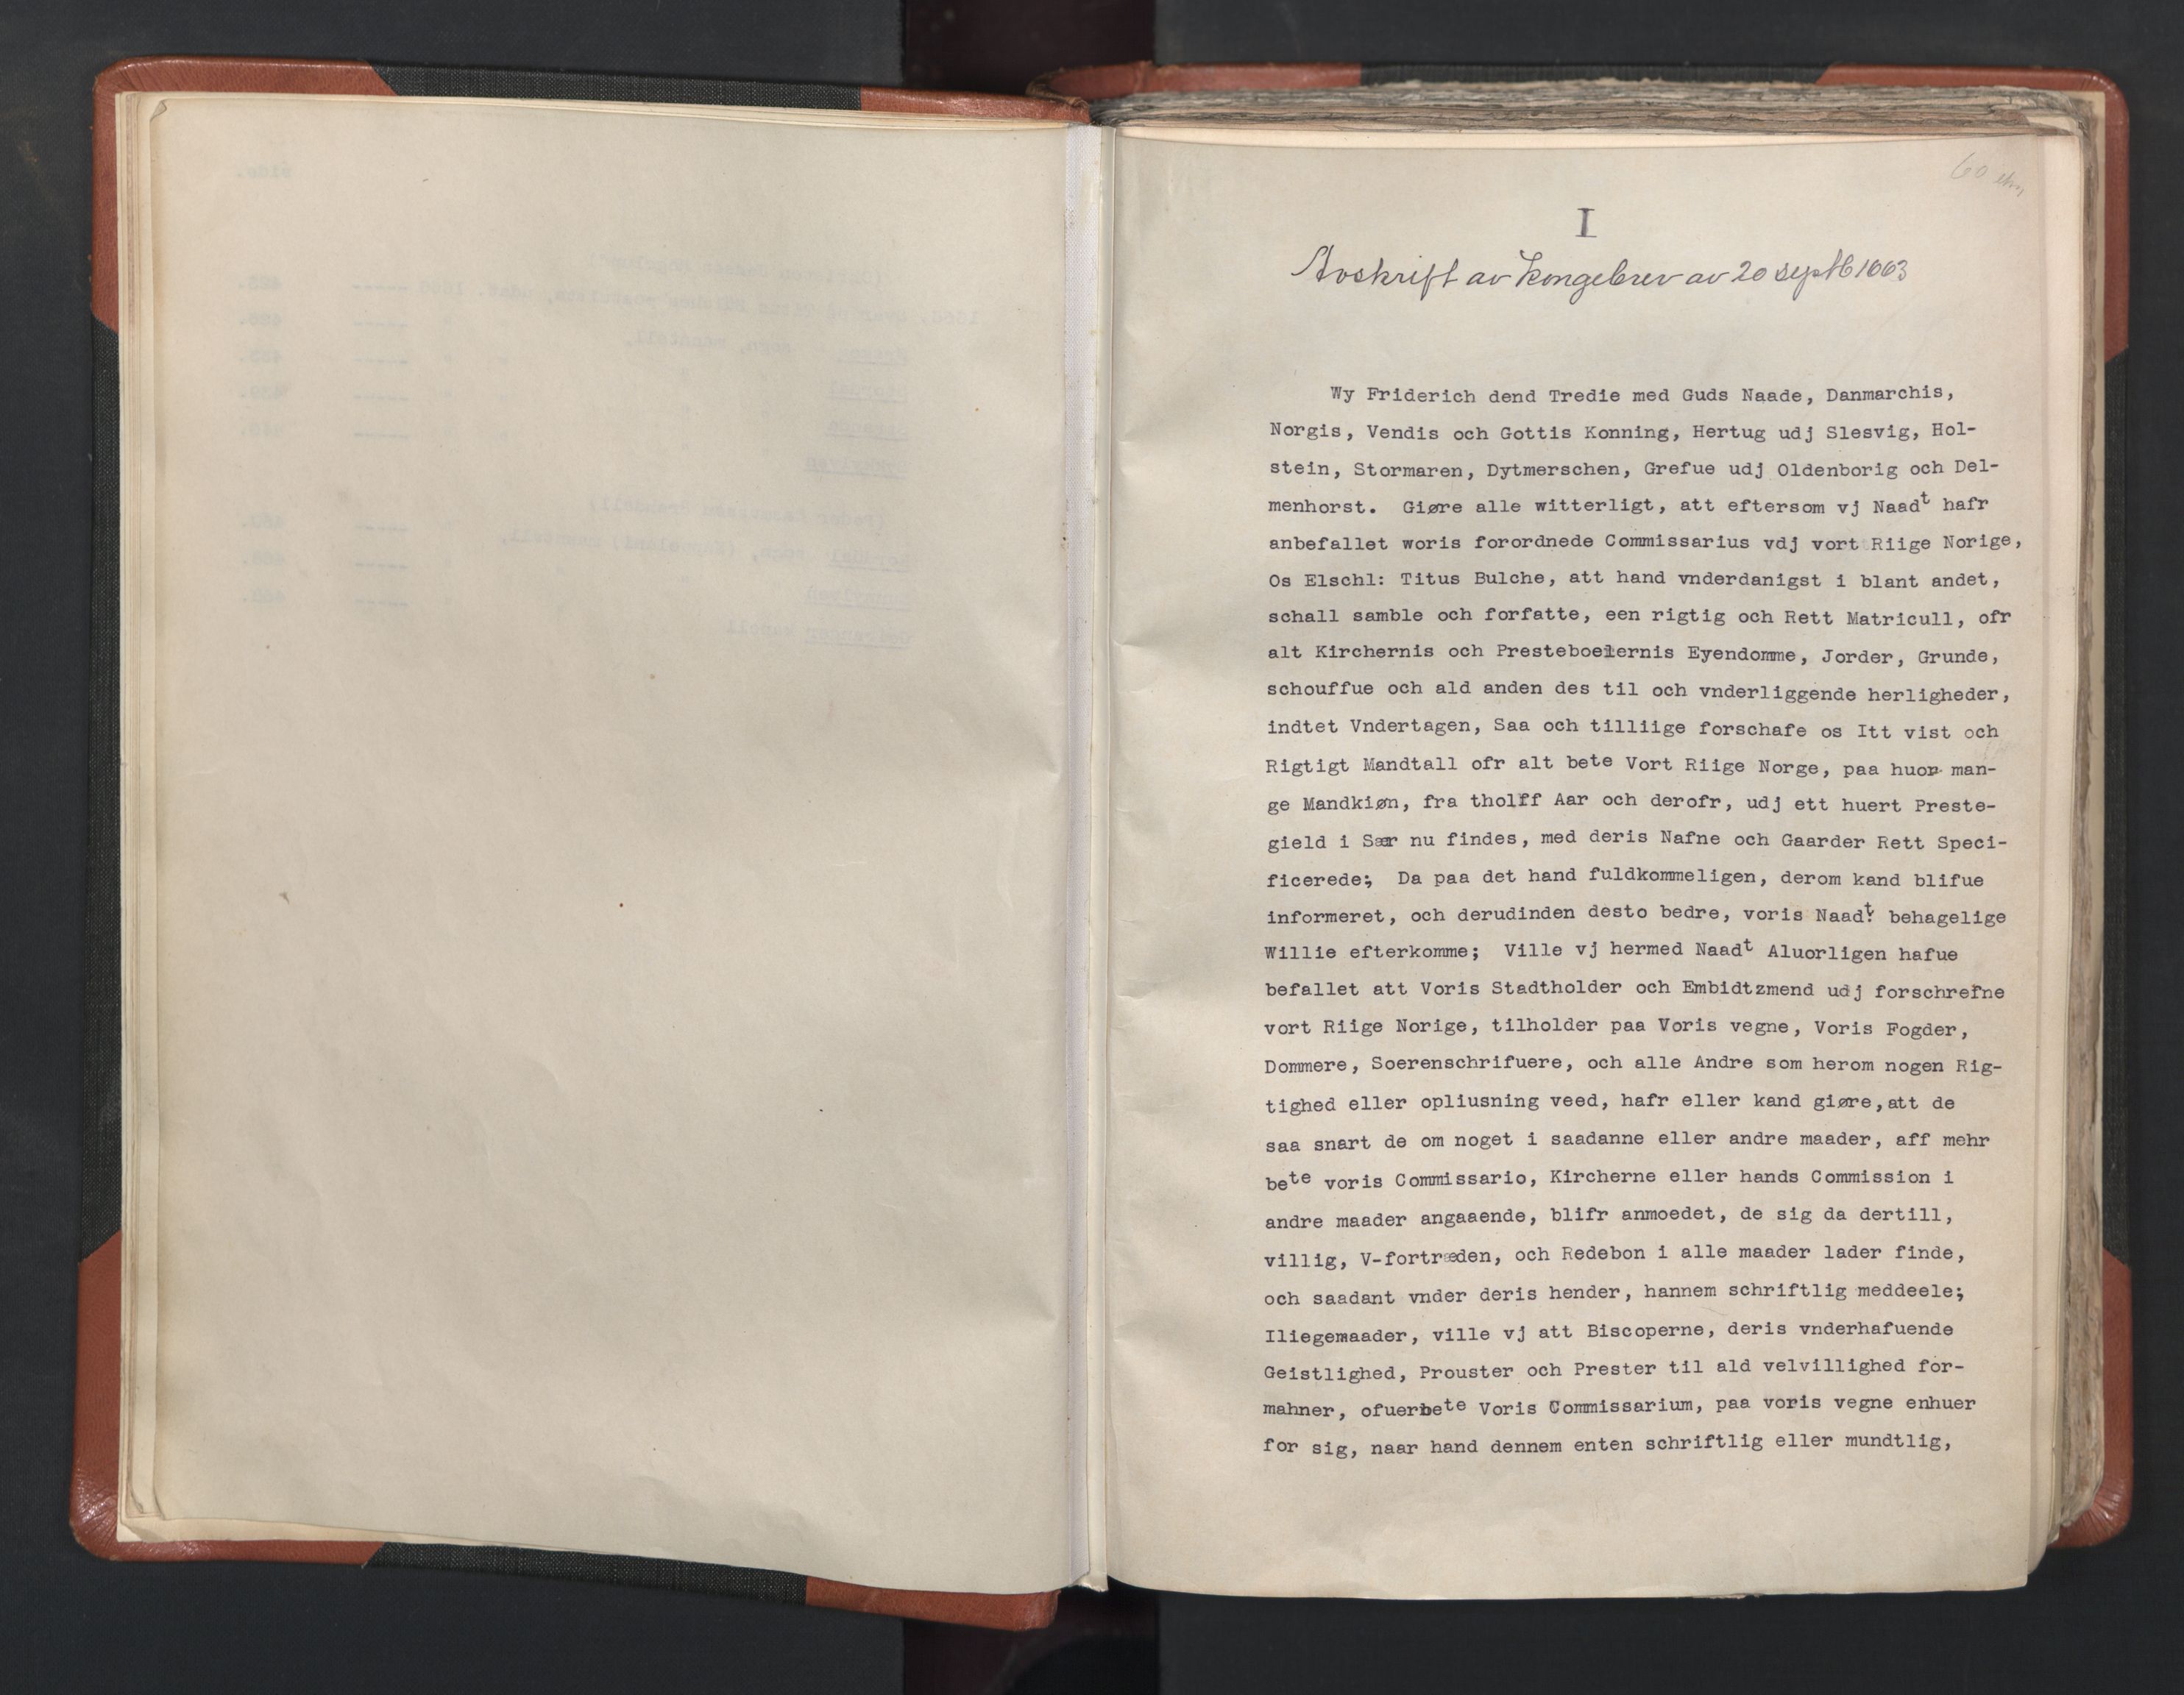 I
Avskrift av kongebrev av 20 septb 1663
Wy Friderich dend Tredie med Guds Naade, Danmarchis,
Norgis, Vendis och Gottis Konning, Hertug udj Slesvig, Hol-
stein, Stormaren, Dytmerschen, Grefue udj Oldenborig och Del-
menhorst. Giøre alle witterligt, att eftersom vj Naadt hafr
anbefallet woris forordnede Commissarius vdj vort Riige Norige,
Os Elschl: Titus Bulche, att hand vnderdanigst i blant andet,
schall samble och forfatte, een rigtig och Rett Matricull, ofr
alt Kirchernis och Presteboelernis Eyendomme, Jorder, Grunde,
schouffue och ald anden des til och vnderliggende herligheder,
indtet Vndertagen, Saa och tilliige forschafe os Itt vist och
Rigtigt Mandtall ofr alt bete Vort Riige Norge, paa huor man-
ge Mandkiøn, fra tholff Aar och derofr, udj ett huert Preste-
gield i Sær nu findes, med deris Nafne och Gaarder Rett Speci-
ficerede; Da paa det hand fuldkommeligen, derom kand blifue
informeret, och derudinden desto bedre, voris Naadt: behagelige
Willie efterkomme; Ville vj hermed Naadt Aluorligen hafue
befallet att Voris Stadtholder och Embidtzmend udj forschrefne
vort Riige Norige, tilholder paa Voris vegne, Voris Fogder,
Dommere, Soerenschrifuere, och alle Andre som herom nogen Rig-
tighed eller opliusning veed, hafr eller kand giøre, att de
saa snart de om noget i saadanne eller andre maader, aff mehr
bete voris Commissario, Kircherne eller hands Commission i
andre maader angaaende, blifr anmoedet, de sig da dertill,
villig, V-fortræden, och Redebon i alle maader lader finde,
och saadant vnder deris hender, hannem schriftlig meddeele;
Iliegemaader, ville vj att Biscoperne, deris vnderhafuende
Geistlighed, Prouster och Prester til ald velvillighed for-
mahner, ofuerbete Voris Commissarium, paa voris vegne enhuer
for sig, naar hand dennem enten schriftlig eller mundtlig,